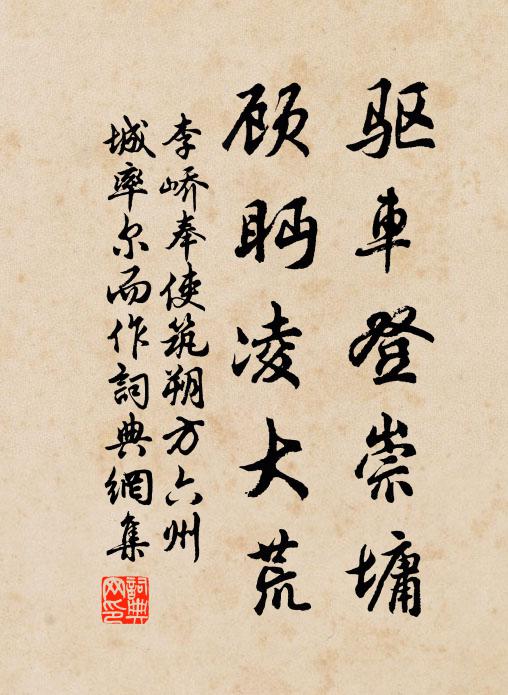 驱車登崇墉
顾眄凌大荒
李峤奉使筑朔方六州
城率尔而作詞典網集
詞典網印